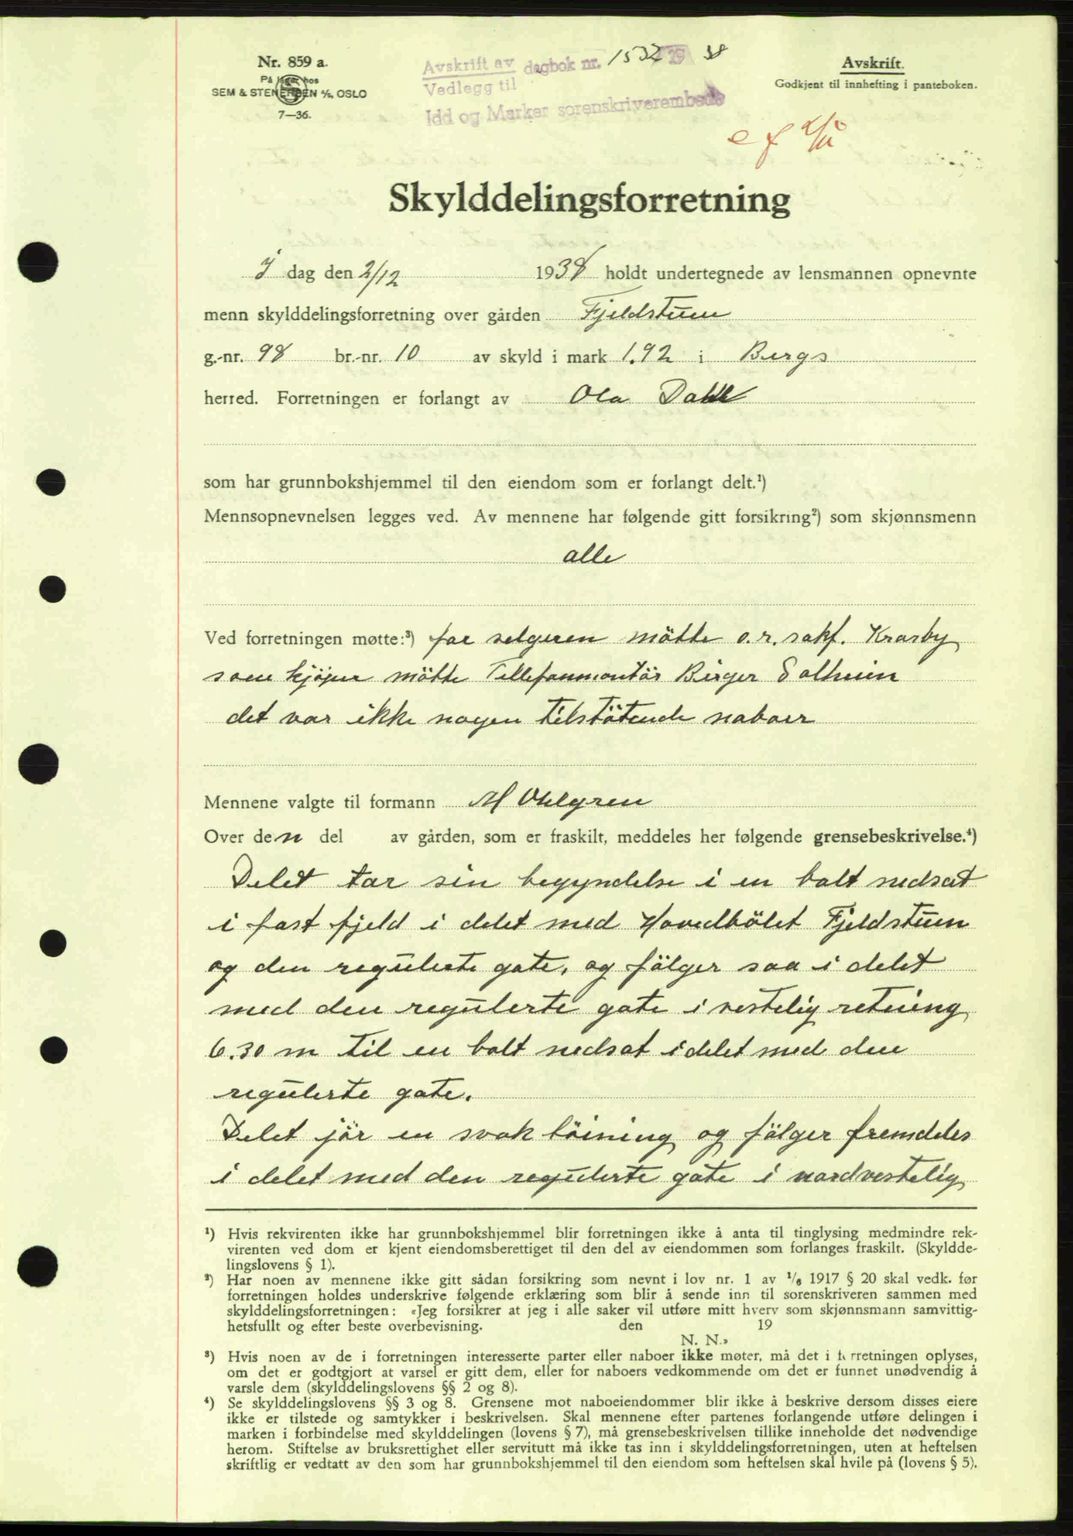 Nr. 859 a.
På lager hos
SEM & STENERSEN A/S, OSLO
7—36.
Avskrift av dagbok nr. 1532 1938
Vedlegg til
Idd og Marker sorenskriverembede
Avskrift.
Godkjent til innhefting i panteboken.
Skylddelingsforretning
I dag den 2/12 1938 holdt undertegnede av lensmannen opnevnte
menn skylddelingsforretning over gården Fjeldstuen
g.-nr. 98 br.-nr. 10 av skyld i mark 1.92 i Bergs
herred. Forretningen er forlangt av Ola Dahl
som har grunnbokshjemmel til den eiendom som er forlangt delt.¹)
Mennsopnevnelsen legges ved. Av mennene har følgende gitt forsikring²) som skjønnsmenn
alle
Ved forretningen møtte:³) for selgeren mötte o.r. sakf. Kraby
som kjöper mötte Tellefonmontör Birger Solheim
det var ikke nogen tilstötende naboer
Mennene valgte til formann M Ohlgren
Over den del av gården, som er fraskilt, meddeles her følgende grensebeskrivelse.⁴)
Delet tar sin begyndelse i en bolt nedsat
i fast fjeld i delet med Hovedbölet Fjeldstuen
og den regulerte gate, og fölger saa i delet
med den regulerte gate i vestelig retning
6.30 m til en bolt nedsat i delet med den
regulerte gate.
Delet jör en svak böining og fölger fremdeles
i delet med den regulerte gate i nordvestelig
¹) Hvis rekvirenten ikke har grunnbokshjemmel blir forretningen ikke å anta til tinglysing medmindre rek-
virenten ved dom er kjent eiendomsberettiget til den del av eiendommen som forlanges fraskilt. (Skyldde-
lingslovens § 1).
²) Har noen av mennene ikke gitt sådan forsikring som nevnt i lov nr. 1 av 1/6 1917 § 20 skal vedk. før
forretningen holdes underskrive følgende erklæring som blir å sende inn til sorenskriveren sammen med
skylddelingsforretningen: «Jeg forsikrer at jeg i alle saker vil utføre mitt hverv som skjønnsmann samvittig-
hetsfullt og efter beste overbevisning. den 19
N. N.»
³) Hvis noen av de i forretningen interesserte parter eller naboer ikke møter, må det i forretningen oplyses,
om det er godtgjort at varsel er gitt dem, eller for naboers vedkommende om det er funnet unødvendig å
varsle dem (skylddelingslovens §§ 2 og 8).
⁴) Se skylddelingslovens §§ 3 og 8. Grensene mot naboeiendommer blir ikke å beskrive dersom disses eiere
ikke er tilstede og samtykker i beskrivelsen. Skal mennene efter partenes forlangende utføre delingen i
marken i forbindelse med skylddelingen (lovens § 7), må grensebeskrivelsen tillike inneholde det nødvendige
herom. Stiftelse av bruksrettighet eller servitutt må ikke tas inn i skylddelingsforretningen, uten at heftelsen
skriftlig er vedtatt av den som har grunnbokshjemmel til den eiendom som heftelsen skal hvile på (lovens § 5).